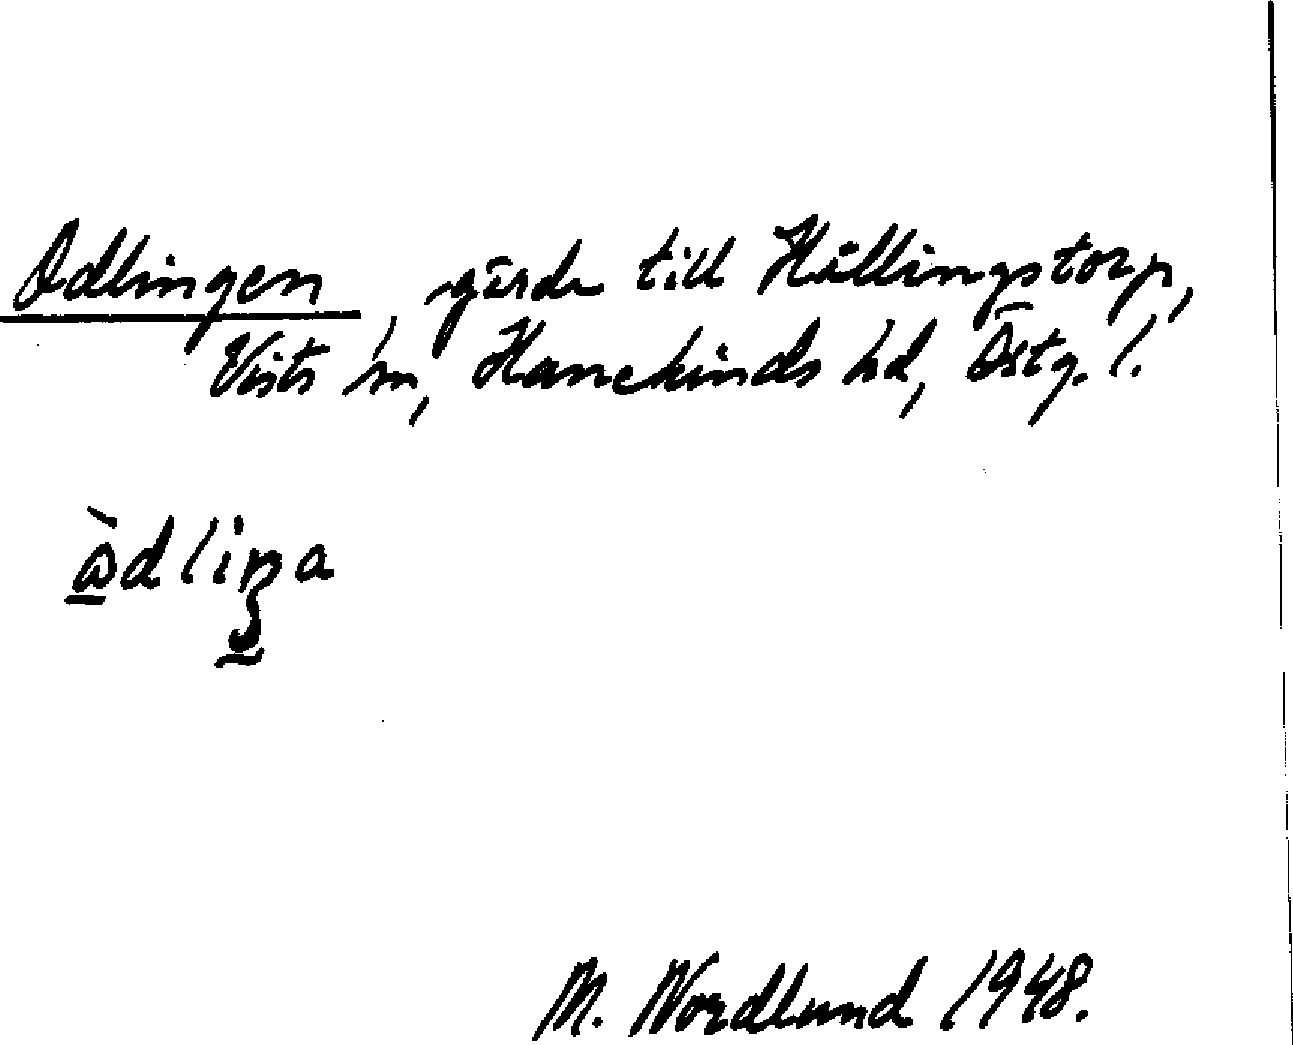 Odlingen, gärde till Hållingstorp,
Vists sn, Hanekinds hd, Östg. l.
M. Nordlund 1948.